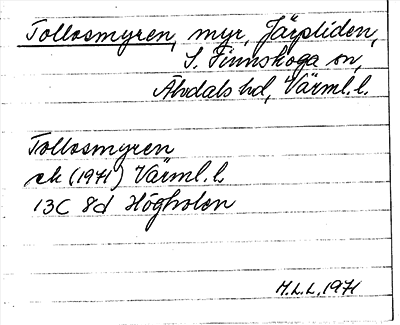 Tollosmyren, myr, Järpliden,
S. Finnskoga sn,
Älvdals hd, Värml. l.
Tollosmyren
ek (1971) Värml. l.
13C 8d Högholen
M.L.L, 1971